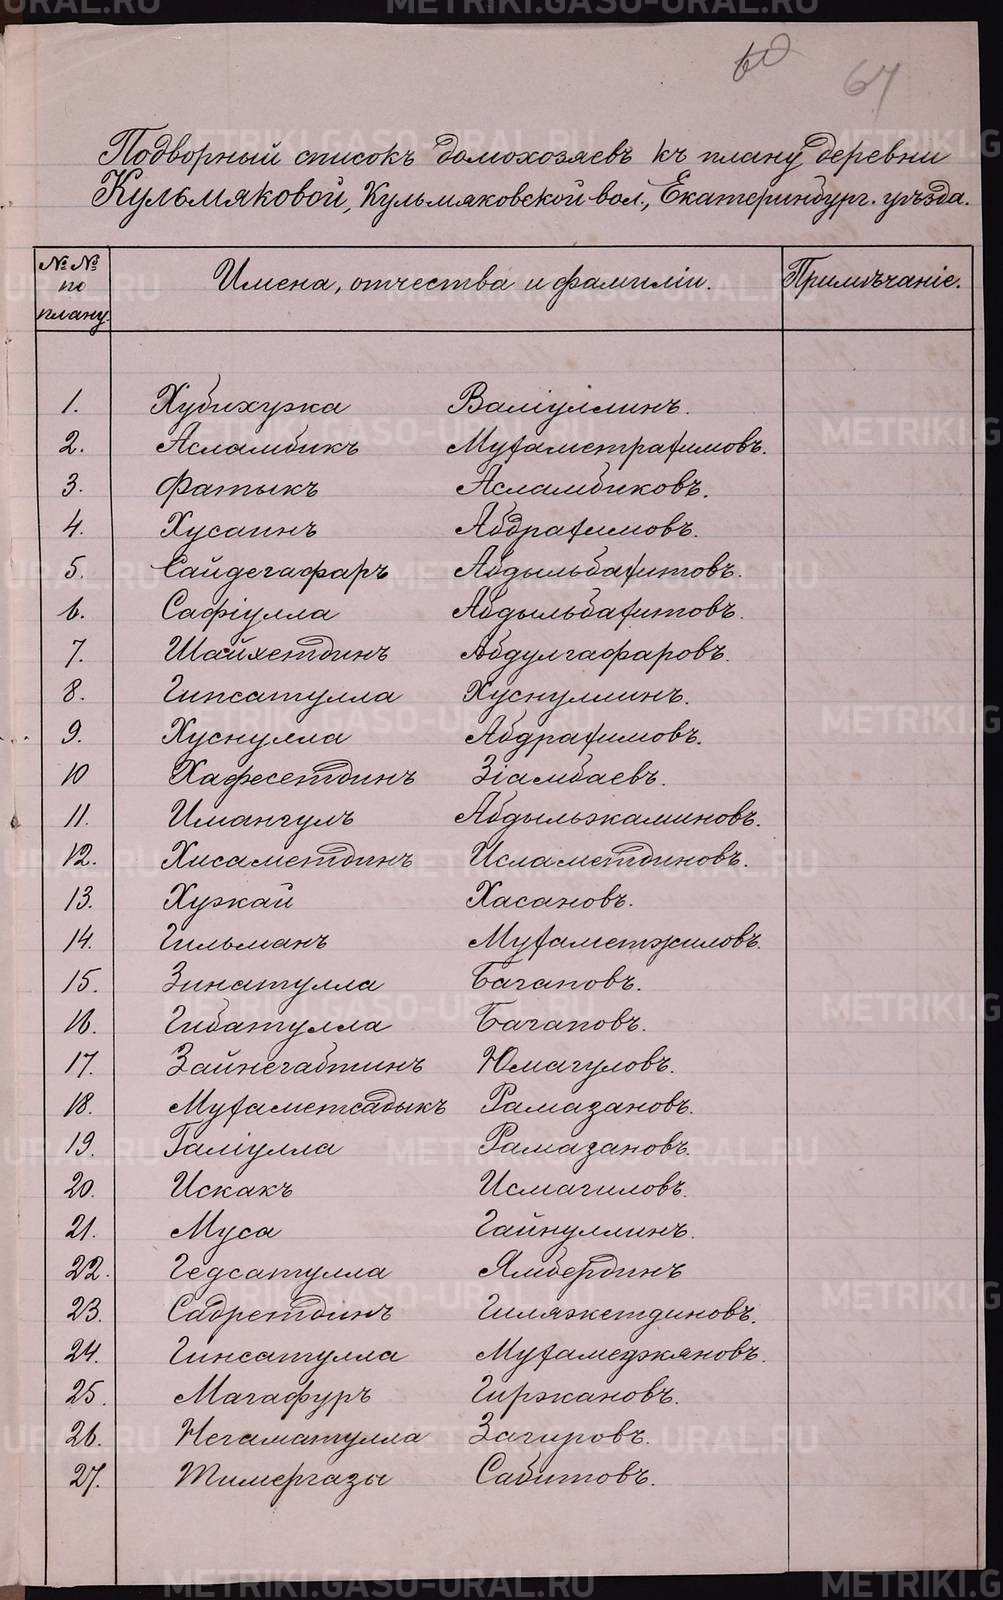 60 67
Подворный списокъ домохозяевъ къ плану деревни
Кульмяковой, Кульмяковской вол., Екатеринбург. уѣзда.
№№ по плану. Имена, отчества и фамиліи. Примѣчаніе.
1. Хубихужа Валіуллинъ.
2. Асламбикъ Мухаметрахимовъ.
3. Фатыкъ Асламбиковъ.
4. Хусаинъ Абдрахимовъ.
5. Сайдегафаръ Абдыльбахитовъ.
6. Сафіулла Абдыльбахитовъ.
7. Шайхетдинъ Абдулгафаровъ.
8. Гипсатулла Хуснуллинъ.
9. Хуснулла Абдрахимовъ.
10 Хафесетдинъ Зіамбаевъ.
11. Имангулъ Абдыльжаминовъ.
12. Хисаметдинъ Исламетдиновъ.
13. Хужай Хасановъ.
14. Гильманъ Мухаметжиловъ.
15. Зинатулла Багаповъ.
16. Гибатулла Багаповъ.
17. Зайнегабтинъ Юмагуловъ.
18. Мухаметсадыкъ Рамазановъ.
19. Галіулла Рамазановъ.
20. Искакъ Исмагиловъ.
21. Муса Гайнуллинъ.
22. Гедсатулла Ямбердинъ
23. Садретдинъ Гиляжетдиновъ.
24. Гинсатулла Мухамеджяновъ.
25. Магафуръ Гиржановъ.
26. Негаматулла Загировъ.
27. Тимергазы Сабитовъ.
METRIKI.GASO-URAL.RU